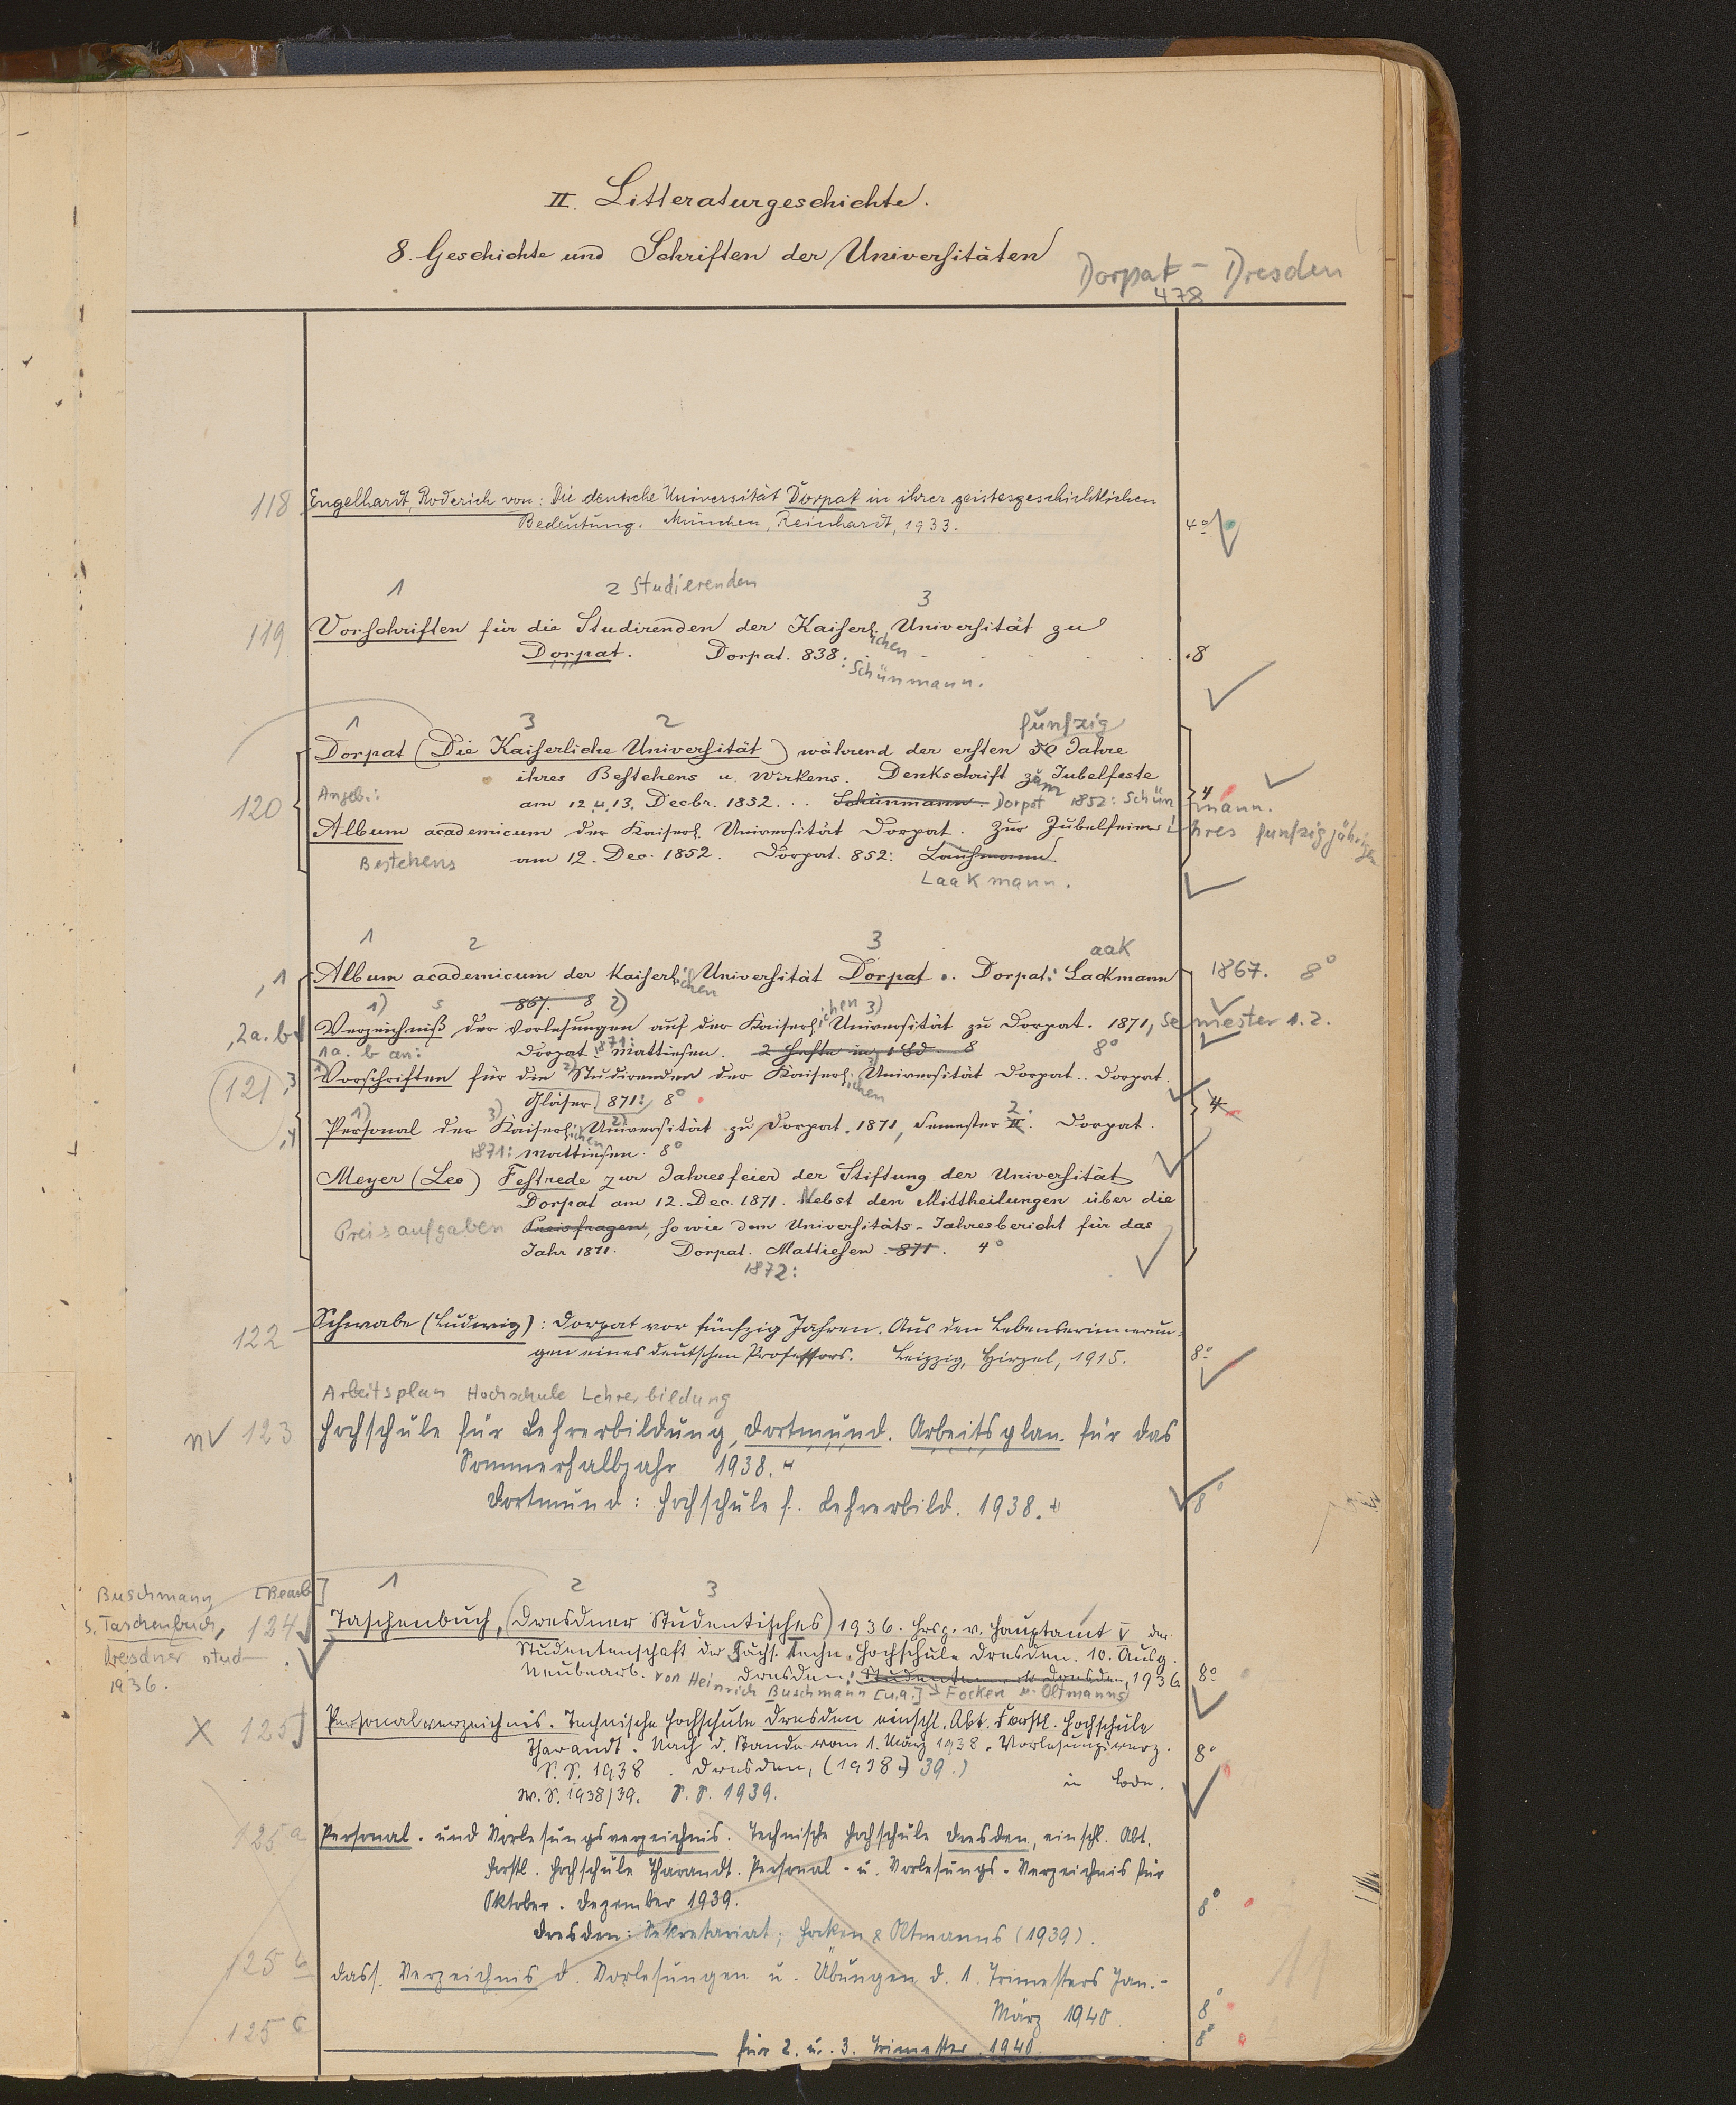 II. Litteraturgeschichte.
8. Geschichte und Schriften der Universitäten
Dorpat - Dresden
478
118 Engelhardt, Roderich von: Die deutsche Universität Dorpat in ihrer geistesgeschichtlichen
Bedeutung. München, Reinhardt, 1933. 4°
1 2 Studierenden 3
119 Vorschriften für die Studirenden der Kaiserl. ichen Universität zu
Dorpat. Dorpat. 838: 8
Schünmann.
1 3 2 funfzig
Dorpat (Die Kaiserliche Universität) während der ersten 50 Jahre
ihres Bestehens u. Wirkens. Denkschrift zum Jubelfeste
120 Angeb.: am 12. u. 13. Decbr. 1852... Schünmann. Dorpat 1852: Schünmann. 4
Album academicum der Kaiserl. Universität Dorpat. Zur Jubelfeier ihres funfzigjährigen
Bestehens am 12. Dec. 1852. Dorpat. 852:
Laakmann.
1 2 3 aak
,1 Album academicum der Kaiserl. ichen Universität Dorpat.. Dorpat: Lackmann 1867. 8°
867. 8
1) 2) ichen 3)
,2a.b Verzeichniß der Vorlesungen auf der Kaiserl. Universität zu Dorpat. 1871, Semester 1. 2.
1a. b an: Dorpat. 1871: Mattiesen. 2 Hefte in 1 Bd. 8 8°
121 ,3 Vorschriften für die Studirenden der Kaiserl. ichen Universität Dorpat.. Dorpat.
Gläser 871: 8°
1) 3) 2) 2.
,4 Personal der Kaiserl. ichen Universität zu Dorpat. 1871, Semester II. Dorpat. 4
1871: Mattiesen. 8°
Meyer (Leo) Festrede zur Jahresfeier der Stiftung der Universität
Dorpat am 12. Dec. 1871. Nebst den Mittheilungen über die
Preisaufgaben Preisfragen, sowie dem Universitäts-Jahresbericht für das
Jahr 1871. Dorpat. Mattiesen. 871. 4°
1872:
122 Schwabe (Ludwig): Dorpat vor fünfzig Jahren. Aus den Lebenserinnerun-
gen eines deutschen Professors. Leipzig, Hirzel, 1915. 8°
Arbeitsplan Hochschule Lehrerbildung
123 Hochschule für Lehrerbildung, Dortmund. Arbeitsplan für das
Sommerhalbjahr 1938.
Dortmund: Hochschule f. Lehrerbild. 1938. 8°
Buschmann [Bearb]
s. Taschenbuch,
Dresdner stud
1936.
1 2 3
124 Taschenbuch, (Dresdner Studentisches) 1936. Hrsg. v. Hauptamt V der
Studentenschaft der Sächs. Techn. Hochschule Dresden. 10. Ausg.
Neubearb. Dresden: Studentenwerk Dresden, 1936 8°
von Heinrich Buschmann [u.a.] Focken u. Oltmanns
X 125 Personalverzeichnis. Technische Hochschule Dresden einschl. Abt. Forstl. Hochschule
Tharandt. Nach d. Stande vom 1. März 1938. Vorlesungsverz. 8°
S. S. 1938. Dresden, (1938-39.)
W. S. 1938/39. S. S. 1939.
125a Personal- und Vorlesungsverzeichnis. Technische Hochschule Dresden, einschl. Abt.
Forstl. Hochschule Tharandt. Personal- u. Vorlesungs-Verzeichnis für
Oktober-Dezember 1939. 8°
Dresden: Sekretariat; Focken & Oltmanns (1939).
125b dass. Verzeichnis d. Vorlesungen u. Übungen d. 1. Trimesters Jan.-
März 1940 8°
125c für 2. u. 3. Trimester 1940. 8°